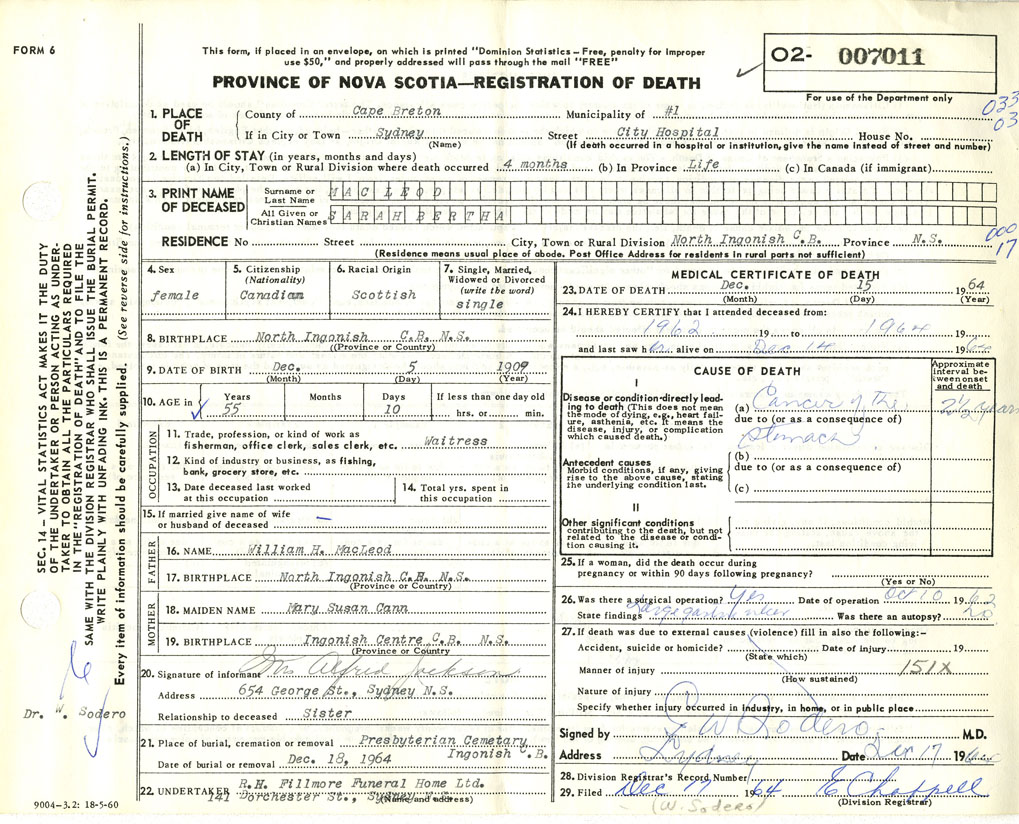 FORM 6
This form, if placed in an envelope, on which is printed "Dominion Statistics – Free, penalty for improper
use $50," and properly addressed will pass through the mail "FREE"
PROVINCE OF NOVA SCOTIA—REGISTRATION OF DEATH
02- 007011
For use of the Department only
033
03
1. PLACE OF DEATH
County of Cape Breton Municipality of #1
If in City or Town Sydney Street City Hospital House No.
(Name) (If death occurred in a hospital or institution, give the name instead of street and number)
2. LENGTH OF STAY (in years, months and days)
(a) In City, Town or Rural Division where death occurred 4 months (b) In Province Life (c) In Canada (if immigrant)
3. PRINT NAME OF DECEASED
Surname or Last Name MAC LEOD
All Given or Christian Names SARAH BERTHA
000
17
RESIDENCE No Street City, Town or Rural Division North Ingonish C.B. Province N.S.
(Residence means usual place of abode. Post Office Address for residents in rural parts not sufficient)
4. Sex
female
5. Citizenship
(Nationality)
Canadian
6. Racial Origin
Scottish
7. Single, Married,
Widowed or Divorced
(write the word)
single
8. BIRTHPLACE North Ingonish C.B. N.S.
(Province or Country)
9. DATE OF BIRTH Dec. 5 1909
(Month) (Day) (Year)
10. AGE in Years Months Days If less than one day old
55 10 hrs. or min.
OCCUPATION
11. Trade, profession, or kind of work as
fisherman, office clerk, sales clerk, etc. Waitress
12. Kind of industry or business, as fishing,
bank, grocery store, etc.
13. Date deceased last worked
at this occupation
14. Total yrs. spent in
this occupation
15. If married give name of wife
or husband of deceased —
FATHER
16. NAME William H. MacLeod
17. BIRTHPLACE North Ingonish C.H. N.S.
(Province or Country)
MOTHER
18. MAIDEN NAME Mary Susan Cann
19. BIRTHPLACE Ingonish Centre C.B. N.S.
(Province or Country)
20. Signature of informant Mrs Alfred Jackson
Address 654 George St., Sydney N.S.
Relationship to deceased Sister
21. Place of burial, cremation or removal Presbyterian Cemetary
Ingonish C.B.
Date of burial or removal Dec. 18, 1964
22. UNDERTAKER R.H. Fillmore Funeral Home Ltd.
141 Dorchester St., Sydney
(Name and address)
MEDICAL CERTIFICATE OF DEATH
23. DATE OF DEATH Dec. 15 1964
(Month) (Day) (Year)
24. I HEREBY CERTIFY that I attended deceased from:
1962 19 to 1964 19
and last saw her alive on Dec 14 1964
CAUSE OF DEATH
Approximate
interval be-
tween onset
and death
I
Disease or condition directly lead-
ing to death (This does not mean
the mode of dying, e.g., heart fail-
ure, asthenia, etc. It means the
disease, injury, or complication
which caused death.)
(a) Cancer of the 2½ years
due to (or as a consequence of)
Stomach
Antecedent causes
Morbid conditions, if any, giving
rise to the above cause, stating
the underlying condition last.
(b)
due to (or as a consequence of)
(c)
II
Other significant conditions
contributing to the death, but not
related to the disease or condi-
tion causing it.
25. If a woman, did the death occur during
pregnancy or within 90 days following pregnancy?
(Yes or No)
26. Was there a surgical operation? Yes Date of operation Oct 10 1962
State findings Large gastric ulcer Was there an autopsy? no
27. If death was due to external causes (violence) fill in also the following:–
Accident, suicide or homicide? Date of injury 19
(State which)
Manner of injury 151X
(How sustained)
Nature of injury
Specify whether injury occurred in industry, in home, or in public place
Signed by W Sodero M.D.
Address Sydney Date Dec 17 1964
28. Division Registrar's Record Number
29. Filed Dec 17 1964 E Chappell
(W. Sodero) (Division Registrar)
SEC. 14 – VITAL STATISTICS ACT MAKES IT THE DUTY
OF THE UNDERTAKER OR PERSON ACTING AS UNDER-
TAKER TO OBTAIN ALL THE PARTICULARS REQUIRED
IN THE "REGISTRATION OF DEATH" AND TO FILE THE
SAME WITH THE DIVISION REGISTRAR WHO SHALL ISSUE THE BURIAL PERMIT.
WRITE PLAINLY WITH UNFADING INK. THIS IS A PERMANENT RECORD.
Every item of information should be carefully supplied. (See reverse side for instructions.)
Dr. W. Sodero
9004–3.2: 18-5-60